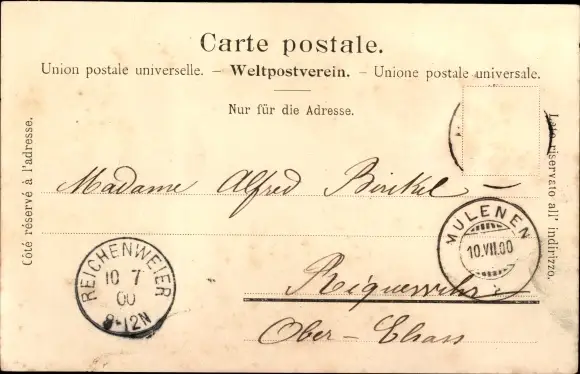 Carte postale.
Union postale universelle. – Weltpostverein. – Unione postale universale.
Nur für die Adresse.
Côté réservé à l'adresse.
Lato riservato all' indirizzo.
Madame Alfred Birckel
MULENEN
10.VII.00
REICHENWEIER
10 7
00
9-12N
Riquewihr
Ober-Elsass